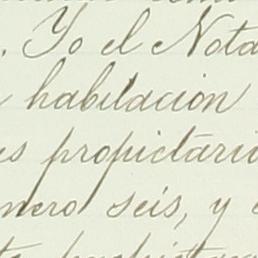 . Yo el Nota
habitación
es propietario
mero seis, y